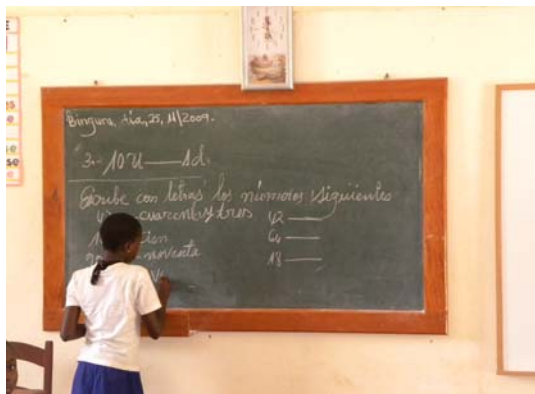 Bingura, día, 25, 11/2009.
3.- 10 U —— 1d.
Escribe con letras los números siguientes
cuarenta y tres 42 ——
cien 64 ——
noventa 18 ——